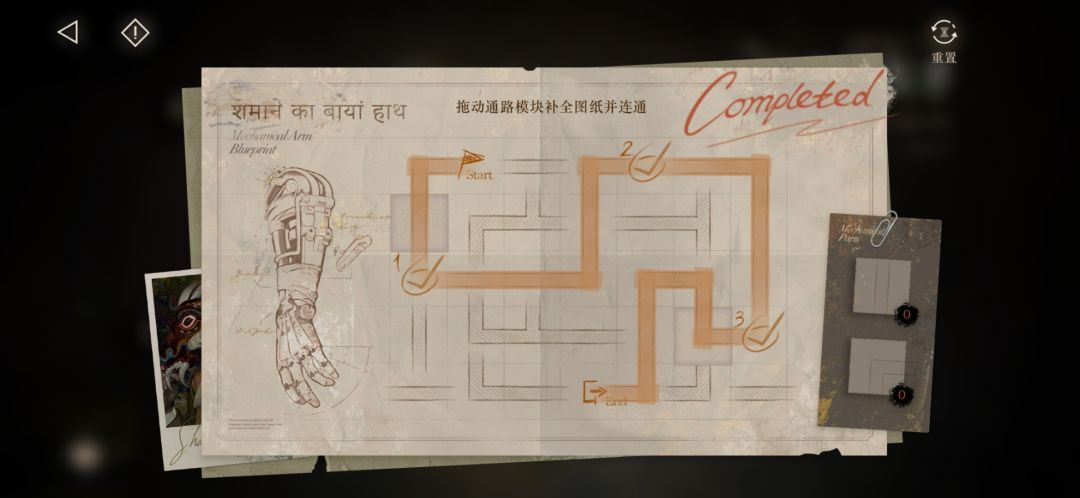 重置
शमाने का बायां हाथ
Mechanical Arm
Blueprint
拖动通路模块补全图纸并连通
Completed
Start
1
2
3
End
Mechanical
Parts
0
0